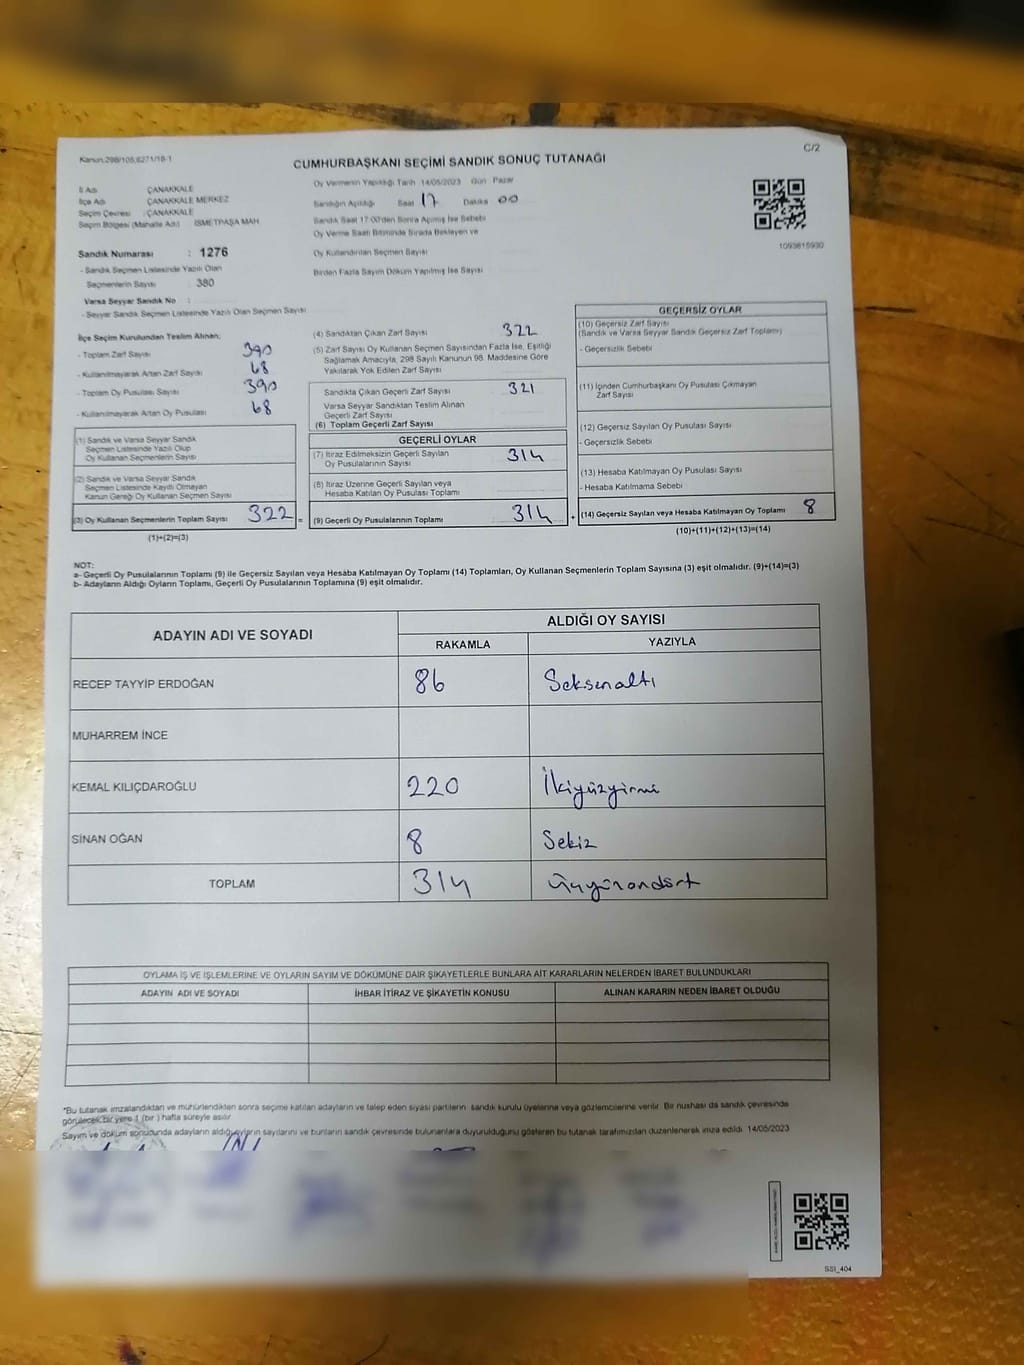 Kanun:298/105,6271/18-1
C/2
CUMHURBAŞKANI SEÇİMİ SANDIK SONUÇ TUTANAĞI
İl Adı ÇANAKKALE
İlçe Adı ÇANAKKALE MERKEZ
Seçim Çevresi : ÇANAKKALE
Seçim Bölgesi (Mahalle Adı) : İSMETPAŞA MAH.
Sandık Numarası : 1276
- Sandık Seçmen Listesinde Yazılı Olan
Seçmenlerin Sayısı : 380
Varsa Seyyar Sandık No :
- Seyyar Sandık Seçmen Listesinde Yazılı Olan Seçmen Sayısı
Oy Vermenin Yapıldığı Tarih 14/05/2023 Gün Pazar
Sandığın Açıldığı Saat 17 Dakika 00
Sandık Saat 17:00'den Sonra Açılmış İse Sebebi
Oy Verme Saati Bitiminde Sırada Bekleyen ve
Oy Kullandırılan Seçmen Sayısı
Birden Fazla Sayım Döküm Yapılmış İse Sayısı
1093615930
İlçe Seçim Kurulundan Teslim Alınan;
- Toplam Zarf Sayısı 390
- Kullanılmayarak Artan Zarf Sayısı 68
- Toplam Oy Pusulası Sayısı 390
- Kullanılmayarak Artan Oy Pusulası 68
(1) Sandık ve Varsa Seyyar Sandık
Seçmen Listesinde Yazılı Olup
Oy Kullanan Seçmenlerin Sayısı
(2) Sandık ve Varsa Seyyar Sandık
Seçmen Listesinde Kayıtlı Olmayan
Kanun Gereği Oy Kullanan Seçmen Sayısı
(3) Oy Kullanan Seçmenlerin Toplam Sayısı 322 =
(1)+(2)=(3)
(4) Sandıktan Çıkan Zarf Sayısı 322
(5) Zarf Sayısı Oy Kullanan Seçmen Sayısından Fazla İse, Eşitliği
Sağlamak Amacıyla, 298 Sayılı Kanunun 98. Maddesine Göre
Yakılarak Yok Edilen Zarf Sayısı
Sandıkta Çıkan Geçerli Zarf Sayısı 321
Varsa Seyyar Sandıktan Teslim Alınan
Geçerli Zarf Sayısı
(6) Toplam Geçerli Zarf Sayısı
GEÇERLİ OYLAR
(7) İtiraz Edilmeksizin Geçerli Sayılan
Oy Pusulalarının Sayısı 314
(8) İtiraz Üzerine Geçerli Sayılan veya
Hesaba Katılan Oy Pusulası Toplamı
(9) Geçerli Oy Pusulalarının Toplamı 314 +
GEÇERSİZ OYLAR
(10) Geçersiz Zarf Sayısı
(Sandık ve Varsa Seyyar Sandık Geçersiz Zarf Toplamı)
- Geçersizlik Sebebi
(11) İçinden Cumhurbaşkanı Oy Pusulası Çıkmayan
Zarf Sayısı
(12) Geçersiz Sayılan Oy Pusulası Sayısı
- Geçersizlik Sebebi
(13) Hesaba Katılmayan Oy Pusulası Sayısı
- Hesaba Katılmama Sebebi
(14) Geçersiz Sayılan veya Hesaba Katılmayan Oy Toplamı 8
(10)+(11)+(12)+(13)=(14)
NOT:
a- Geçerli Oy Pusulalarının Toplamı (9) ile Geçersiz Sayılan veya Hesaba Katılmayan Oy Toplamı (14) Toplamları, Oy Kullanan Seçmenlerin Toplam Sayısına (3) eşit olmalıdır. (9)+(14)=(3)
b- Adayların Aldığı Oyların Toplamı, Geçerli Oy Pusulalarının Toplamına (9) eşit olmalıdır.
ADAYIN ADI VE SOYADI ALDIĞI OY SAYISI
RAKAMLA YAZIYLA
RECEP TAYYİP ERDOĞAN 86 Seksenaltı
MUHARREM İNCE
KEMAL KILIÇDAROĞLU 220 İkiyüzyirmi
SİNAN OĞAN 8 Sekiz
TOPLAM 314 Üçyüzondört
OYLAMA İŞ VE İŞLEMLERİNE VE OYLARIN SAYIM VE DÖKÜMÜNE DAİR ŞİKAYETLERLE BUNLARA AİT KARARLARIN NELERDEN İBARET BULUNDUKLARI
ADAYIN ADI VE SOYADI İHBAR İTİRAZ VE ŞİKAYETİN KONUSU ALINAN KARARIN NEDEN İBARET OLDUĞU
*Bu tutanak imzalandıktan ve mühürlendikten sonra seçime katılan adayların ve talep eden siyasi partilerin sandık kurulu üyelerine veya gözlemcilerine verilir. Bir nushası da sandık çevresinde
görülecek bir yere 1 (bir ) hafta süreyle asılır
Sayım ve döküm sonucunda adayların aldığı oyların sayılarını ve bunların sandık çevresinde bulunanlara duyurulduğunu gösteren bu tutanak tarafımızdan düzenlenerek imza edildi. 14/05/2023
SSI_404